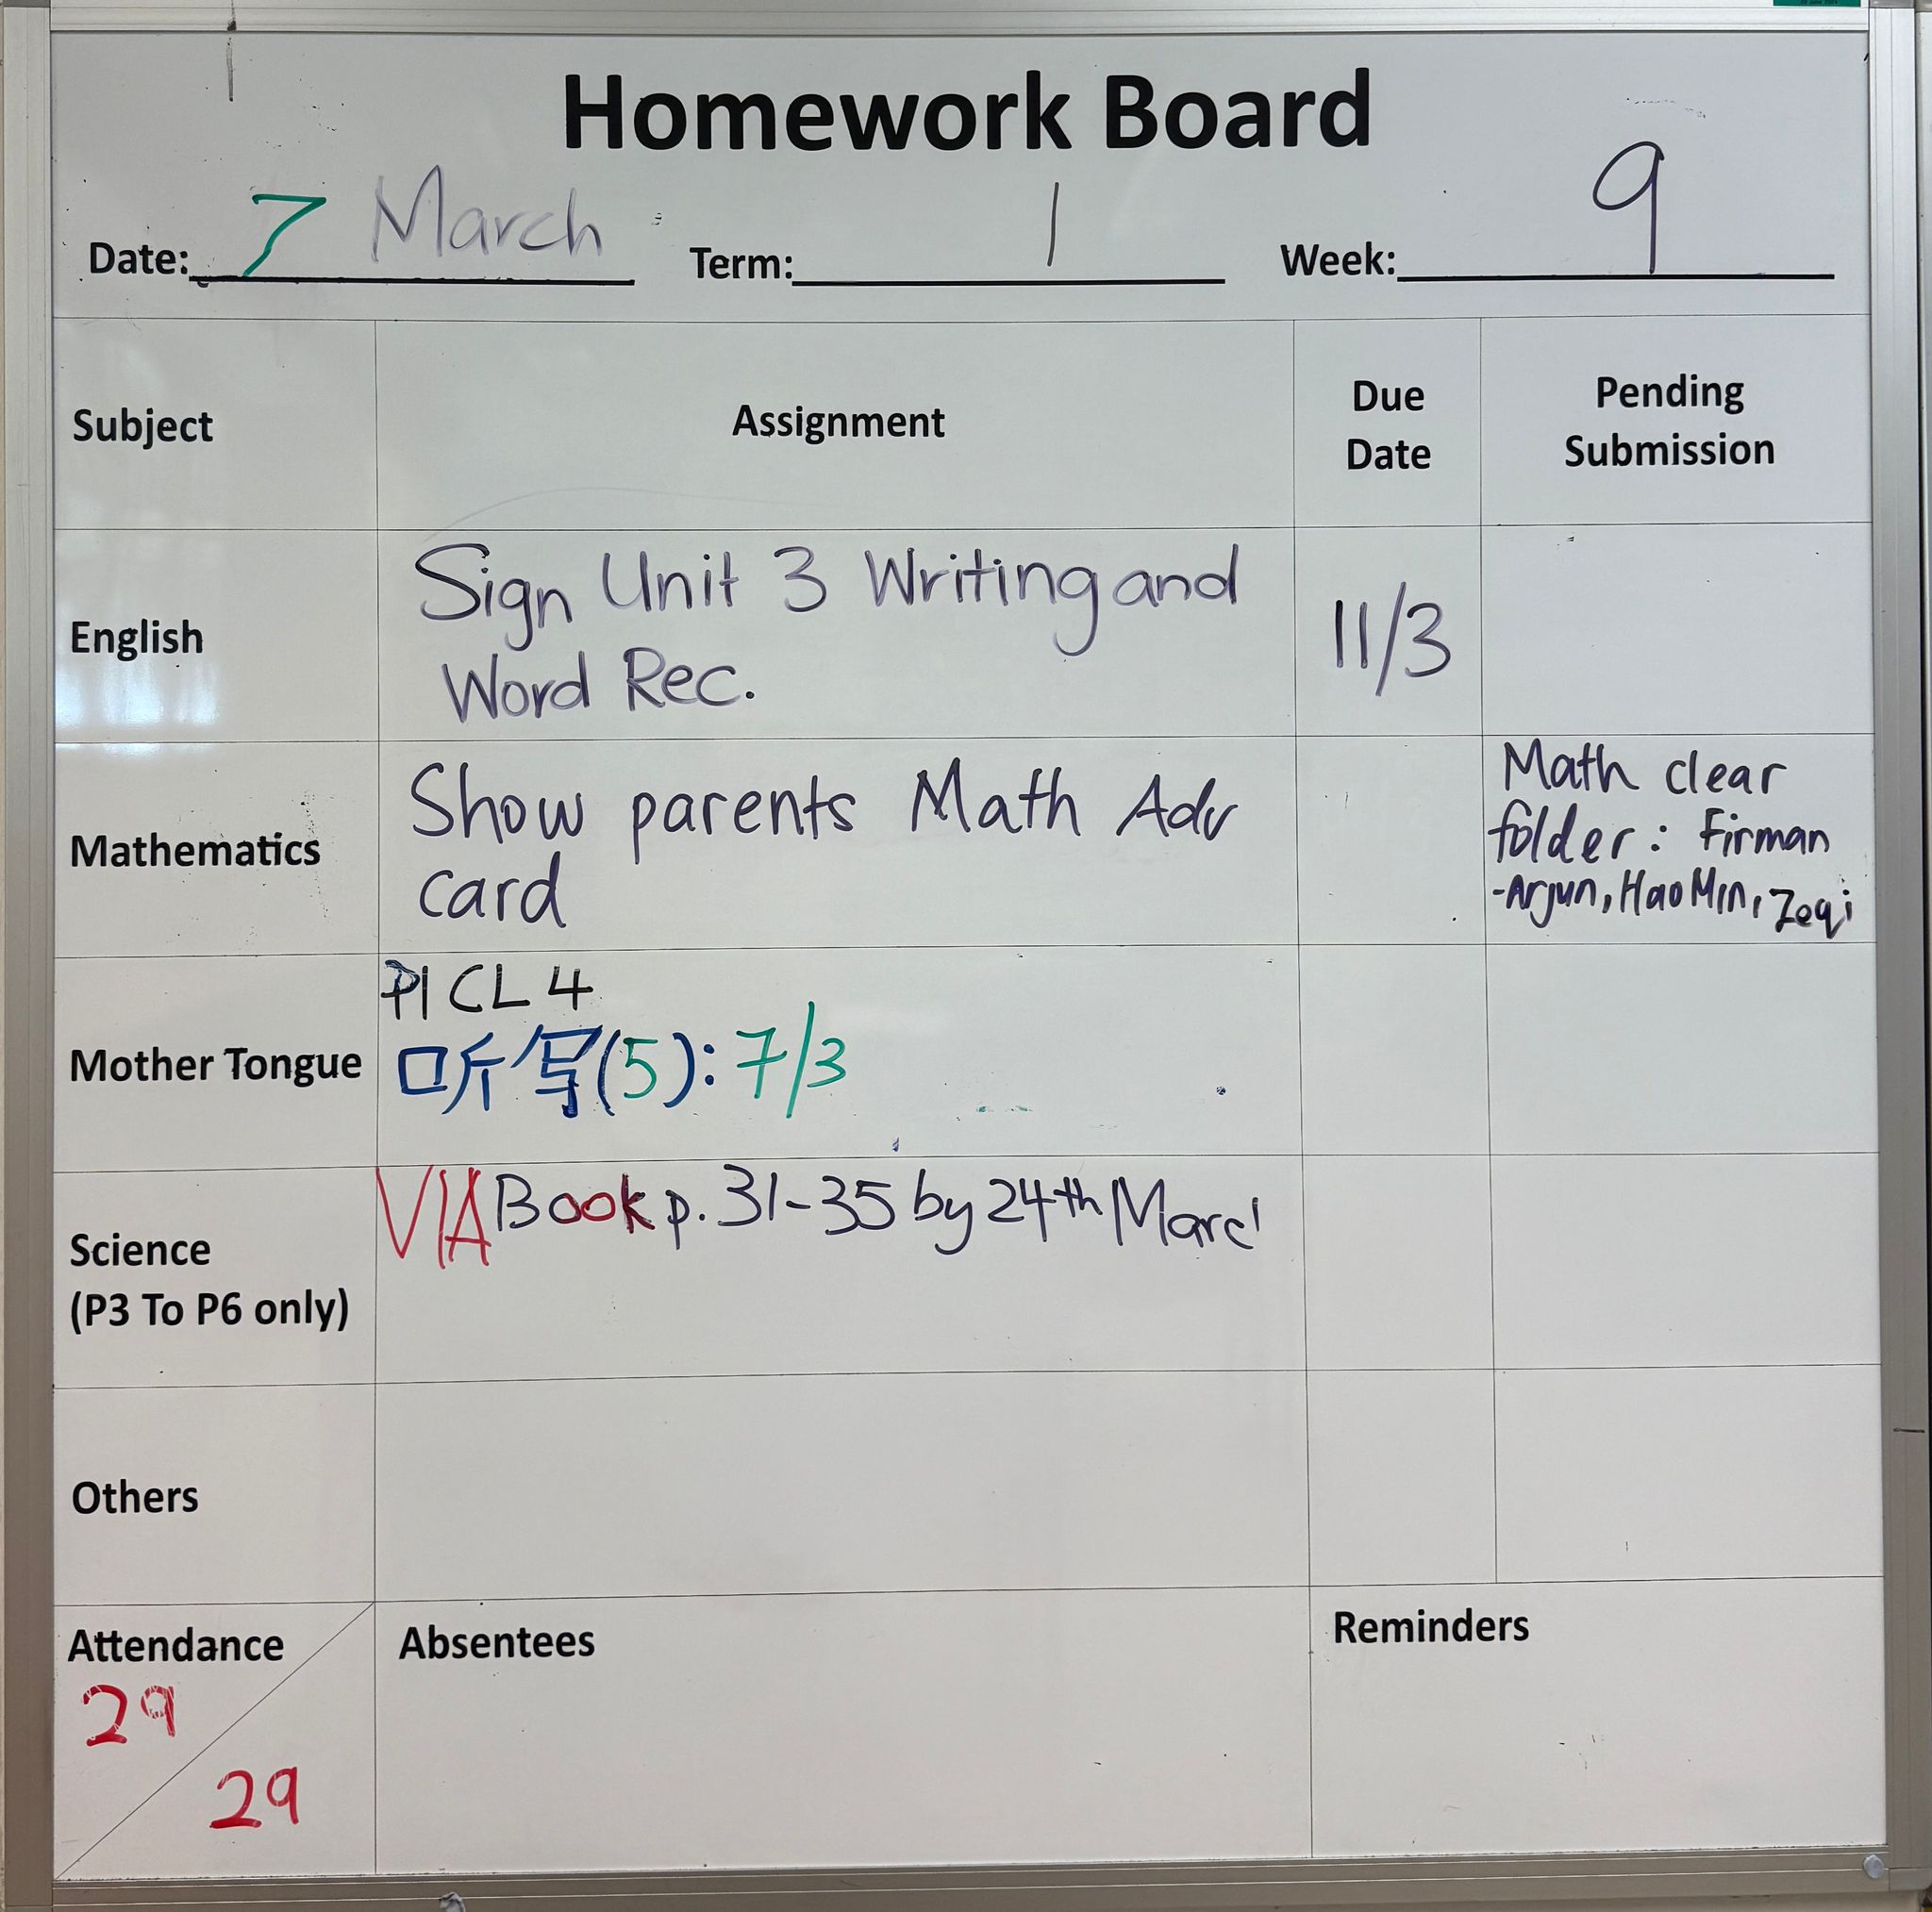 Homework Board
Date: 7 March Term: 1 Week: 9
Subject Assignment Due Date Pending Submission
English
Sign Unit 3 Writing and
Word Rec.
11/3
Mathematics
Show parents Math Adv
card
Math clear
folder: Firman
-Arjun, Hao Min, Zeqi
Mother Tongue
P1 CL 4
听写(5): 7/3
Science
(P3 To P6 only)
VIA Book p. 31-35 by 24th Marc
Others
Attendance
29
29
Absentees
Reminders